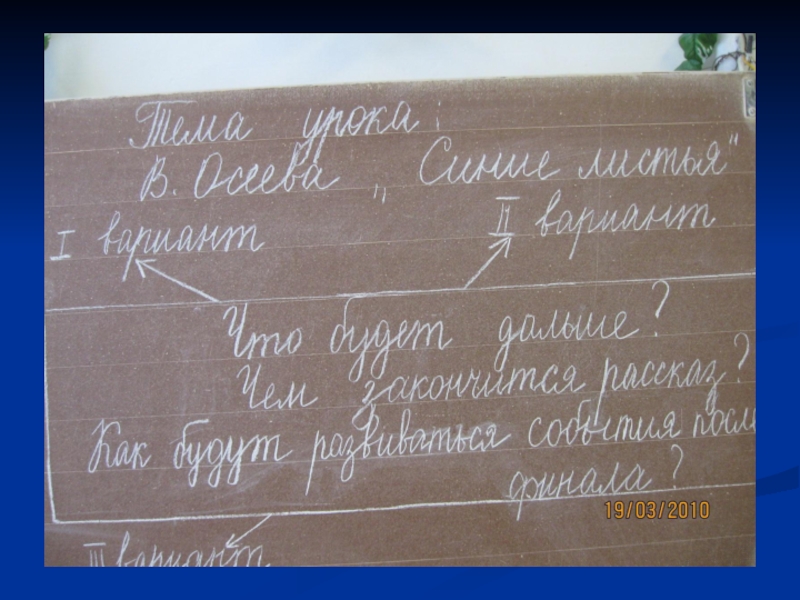 Тема урока:
В. Осеева „Синие листья"
I вариант II вариант
Что будет дальше?
Чем закончится рассказ?
Как будут развиваться события после
финала?
19/03/2010
III вариант